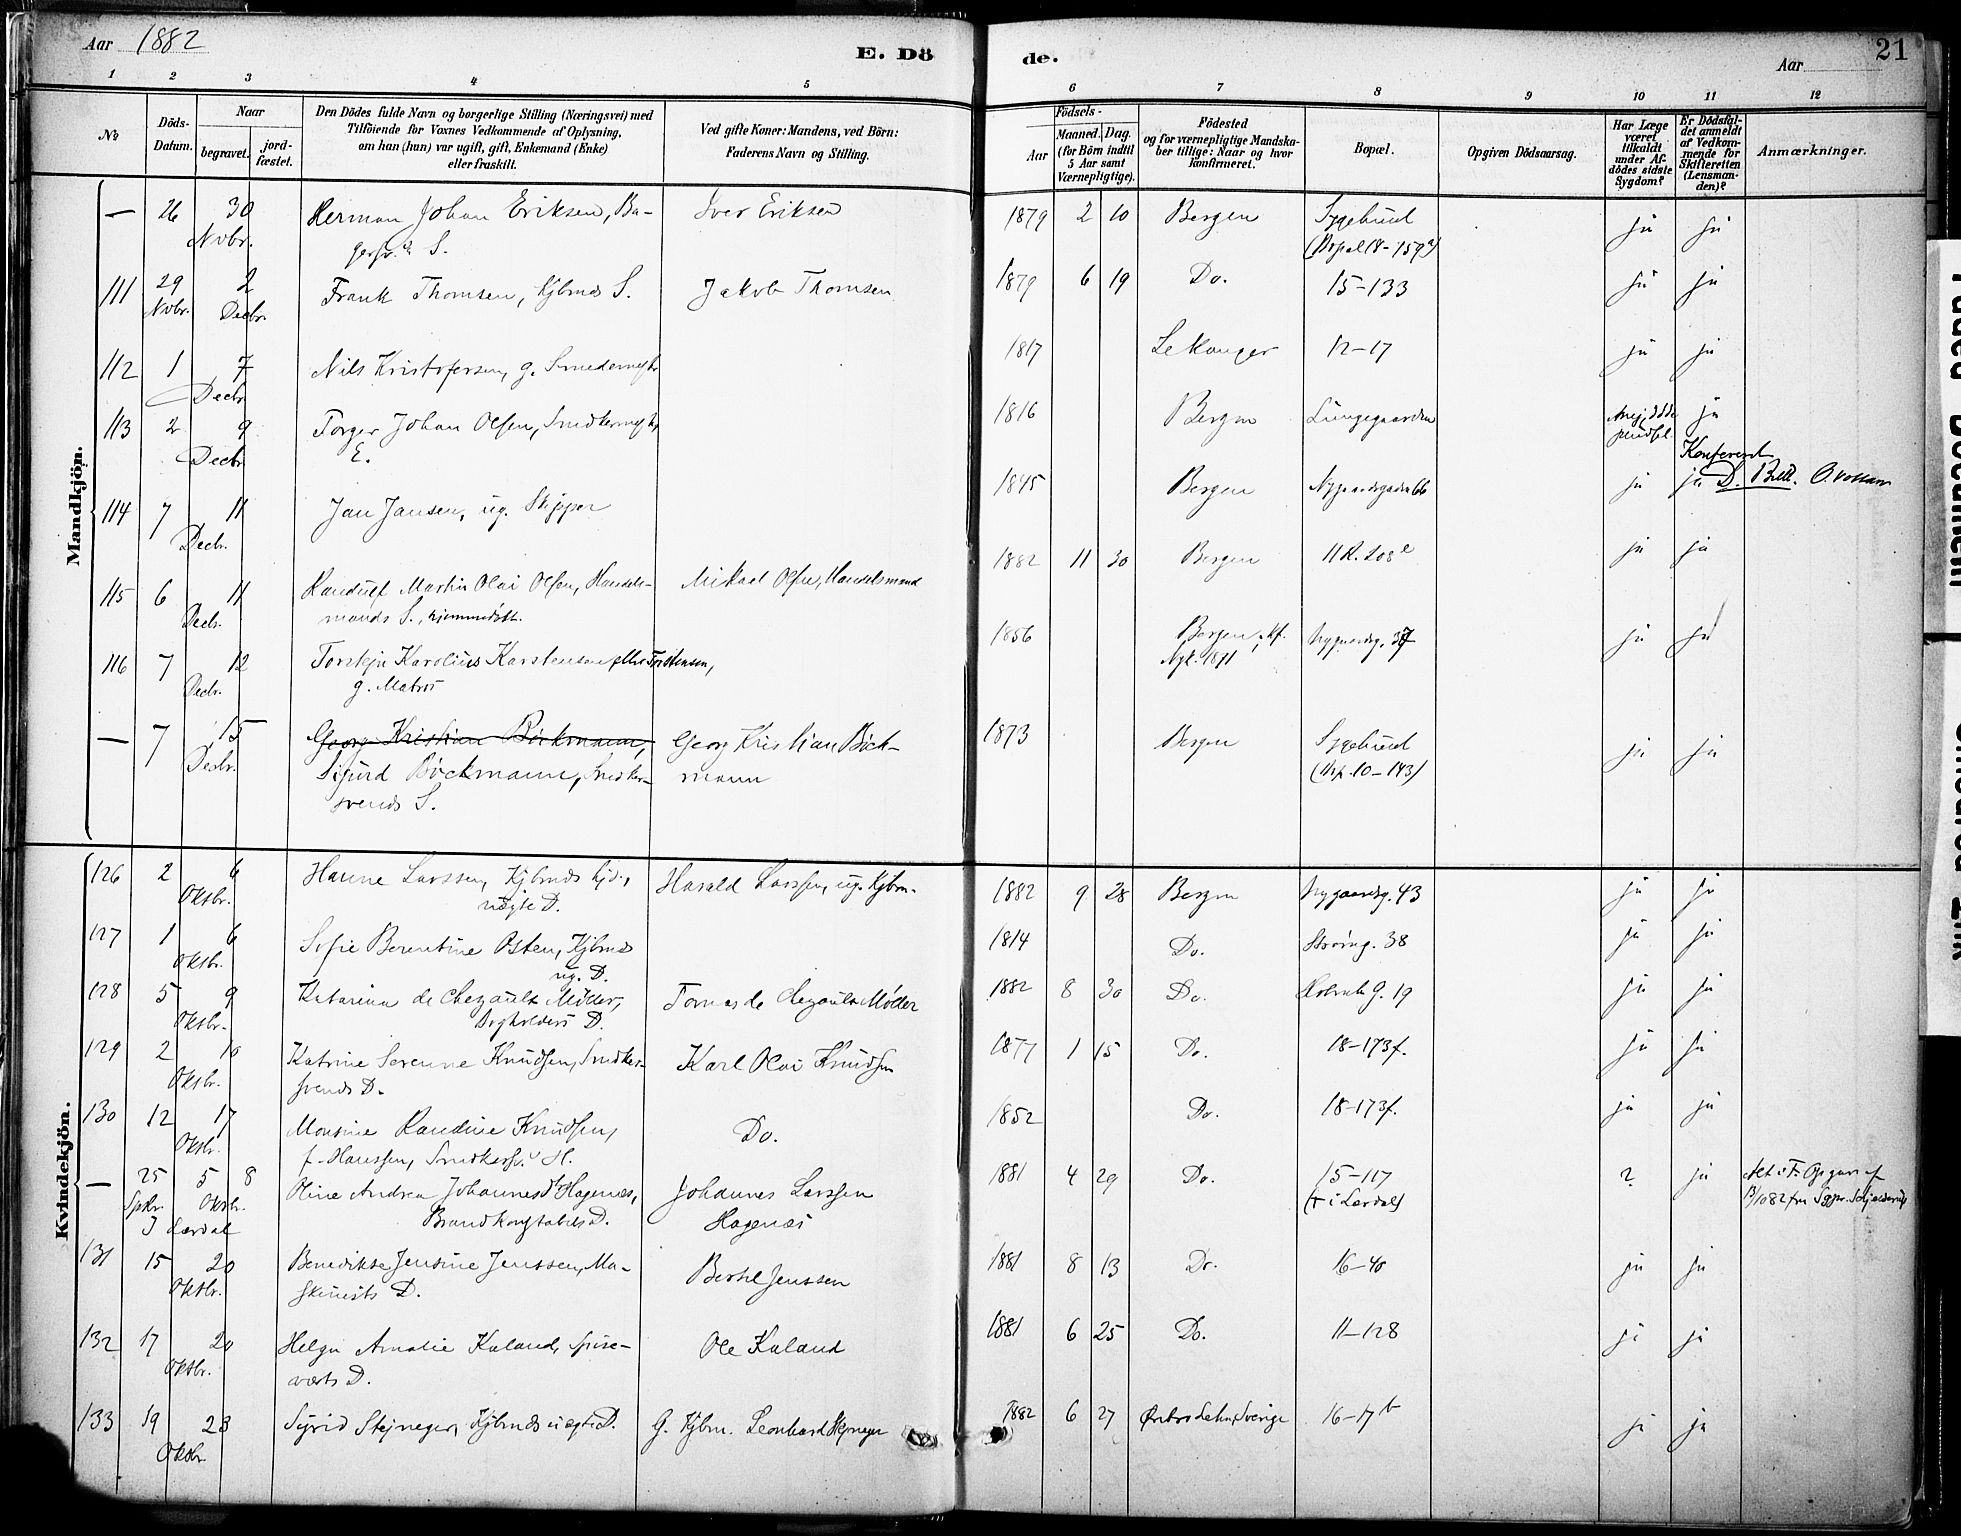 Aar 1882
E. Dö
de.
Aar
21
1 2 3 4 5
6 7 8 9 10 11 12
No
Döds-
Datum.
Naar
begravet.
jord-
fæstet.
Den Dödes fulde Navn og borgerlige Stilling (Næringsvei) med
Tilföiende for Voxnes Vedkommende af Oplysning,
om han (hun) var ugift, gift, Enkemand (Enke)
eller fraskilt.
Ved gifte Koner: Mandens, ved Börn:
Faderens Navn og Stilling.
Födsels-
Aar
Maaned. Dag.
(for Börn indtil
5 Aar samt
Værnepligtige).
Födested
og for værnepligtige Mandska-
ber tillige: Naar og hvor
konfirmeret.
Bopæl.
Opgiven Dödsaarsag.
Har Læge
været
tilkaldt
under Af-
dödes sidste
Sygdom?
Er Dödsfal-
det anmeldt
af Vedkom-
mende for
Skifteretten
(Lensman-
den)?
Anmærkninger.
Mandkjön.
— 26 30 Herman Johan Eriksen, Ba- Iver Eriksen 1879 2 10 Bergen Sygehuset ja ja
Novbr. S. (Bopæl 18-159a)
111 29 2 Frank Thomsen, Kjbmds S. Jakob Thomsen 1879 6 19 Do. 15-133 ja ja
Novbr. Decbr.
112 1 7 Nils Kristofersen, g. Smedemester 1817 Lekanger 12-17 ja ja
Decbr.
113 2 9 Torger Johan Olsen, Snedkermester, 1816 Bergen Lungegaarden ja
Decbr. E.
114 7 11 Jan Jansen, ug. Skipper 1845 Bergen Nygaardsgaden 66 ja ja
Decbr.
Konfereret
D. Bull.
115 6 11 Randulf Martin Olai Olsen, Handels- Mikael Olsen, Handelsmand 1882 11 30 Bergen 11 R. 208e ja ja
Decb. mands S., hjemmedøbt.
116 7 12 Torstejn Karolius Karstensen eller Torstensen, 1856 Bergen, kf. Nygaardsg. 37 ja ja
Decbr. g. Matros Nyk. 1871
— 7 15 Georg Kristian Böckmann, Georg Kristian Böck- 1873 Bergen Sygehuset ja ja
Decbr. Sigurd Böckmann, Snedker- mann (Bop. 10-143)
svends S.
Kvindekjön.
126 2 6 Hanne Larssen, Kjbmds Harald Larssen, ug. Kjbm. 1882 9 28 Bergen Nygaardsg. 43 ja ja
Oktbr. uægte D.
127 1 6 Sofie Berentine Osten, Kjbmds 1814 Do. Strømg. 38 ja ja
Oktbr. ug. D.
128 5 9 Katarina de Chezaulx Möller, Tomas de Chezaulx Möller 1882 8 30 Do. G. 19 ja ja
Oktbr. Bogholders D.
129 2 10 Katrine Serenne Knudsen, Snedker- Karl Olai Knudsen 1877 1 15 Do. 18-173f. ja ja
Oktbr. svends D.
130 12 17 Monsine Randine Knudsen, Do. 1852 Do. 18-173f. ja ja
Oktbr. f. Hanssen, Snedkersv. H.
— 25 5 8 Oline Andrea Johannesd. Hagenæs, Johannes Larssen 1881 4 29 Do. 15-117 ? ja
Oktbr. Brandkonstabels D. Hagenæs (+ i Lærdal)
I Lærdal
131 15 20 Benedikte Jensine Jenssen, Ma- Bertil Jenssen 1881 8 13 Do. 16-40 ja ja
Oktbr. skinists D.
132 17 20 Helga Amalie Kaland, Spise- Ole Kaland 1881 6 25 Do. 11-128 ja ja
Oktbr. værts D.
133 19 23 Sigrid Stejneger, Kjbmds uægte D. G. Kjbm. Leonhard Stejneger 1882 6 27 Ørebro Lehn, Sverige 16-17b ja ja
Oktbr.